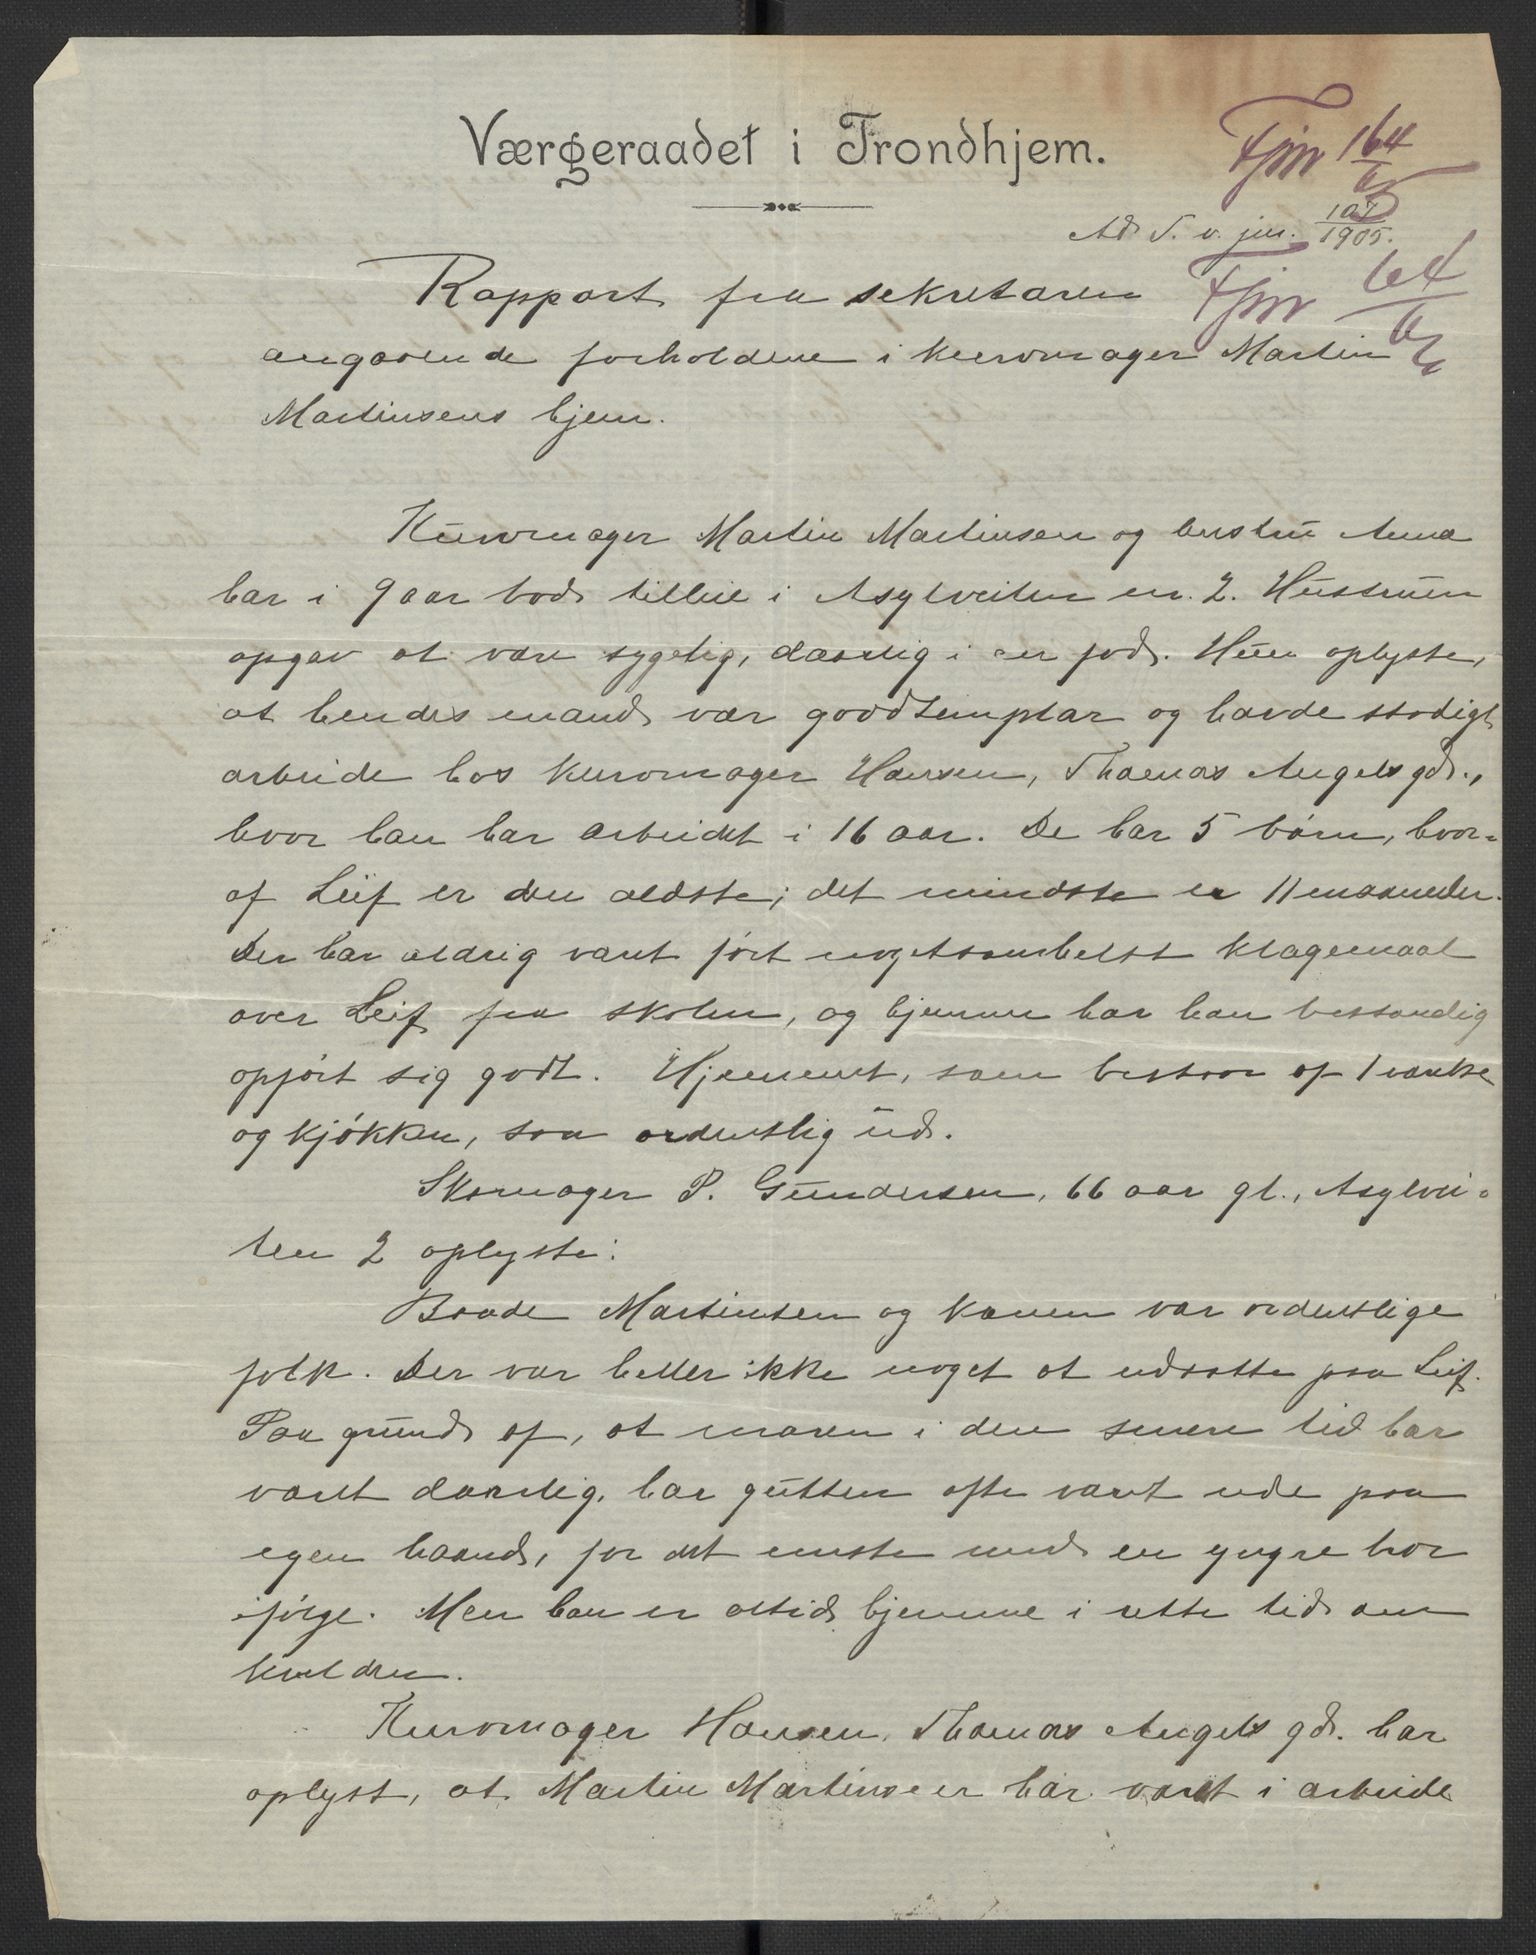 Værgeraadet i Trondhjem.
Fjnr 164
Ad S. v. jnr. 107/1905.
Rapport fra sekretæren
Fjnr 64
angaaende forholdene i kurvmager Martin
Martinsens hjem.
Kurvmager Martin Martinsen og hustru Anna
har i 9 aar bod tilleie i Asylveiten nr. 2. Hustruen
opgav at være sygelig, daarlig i en fod. Hun oplyste,
at hendes mand var goodtemplar og havde stadigt
arbeide hos kurvmager Hansen, Thomas Angels gd.,
hvor han har arbeidet i 16 aar. De har 5 børn, hvor-
af Leif er den ældste; det mindste er 11 maaneder.
Der har aldrig været ført nogetsomhelst klagemaal
over Leif fra skolen, og hjemme har han bestandig
opført sig godt. Hjemmet, som bestaar af 1 værelse
og kjøkken, saa ordentlig ud.
Skomager P. Gundersen, 66 aar gl., Asylvei-
ten 2 oplyste:
Baade Martinsen og konen var ordentlige
folk. Der var heller ikke noget at udsætte paa Leif.
Paa grund af, at moren i den senere tid har
været daarlig, har gutten ofte været ude paa
egen haand, for det meste med en yngre bror
i følge. Men han er altid hjemme i rette tid om
kvelden.
Kurvmager Hansen, Thomas Angels gd. har
oplyst, at Martin Martinsen har været i arbeide